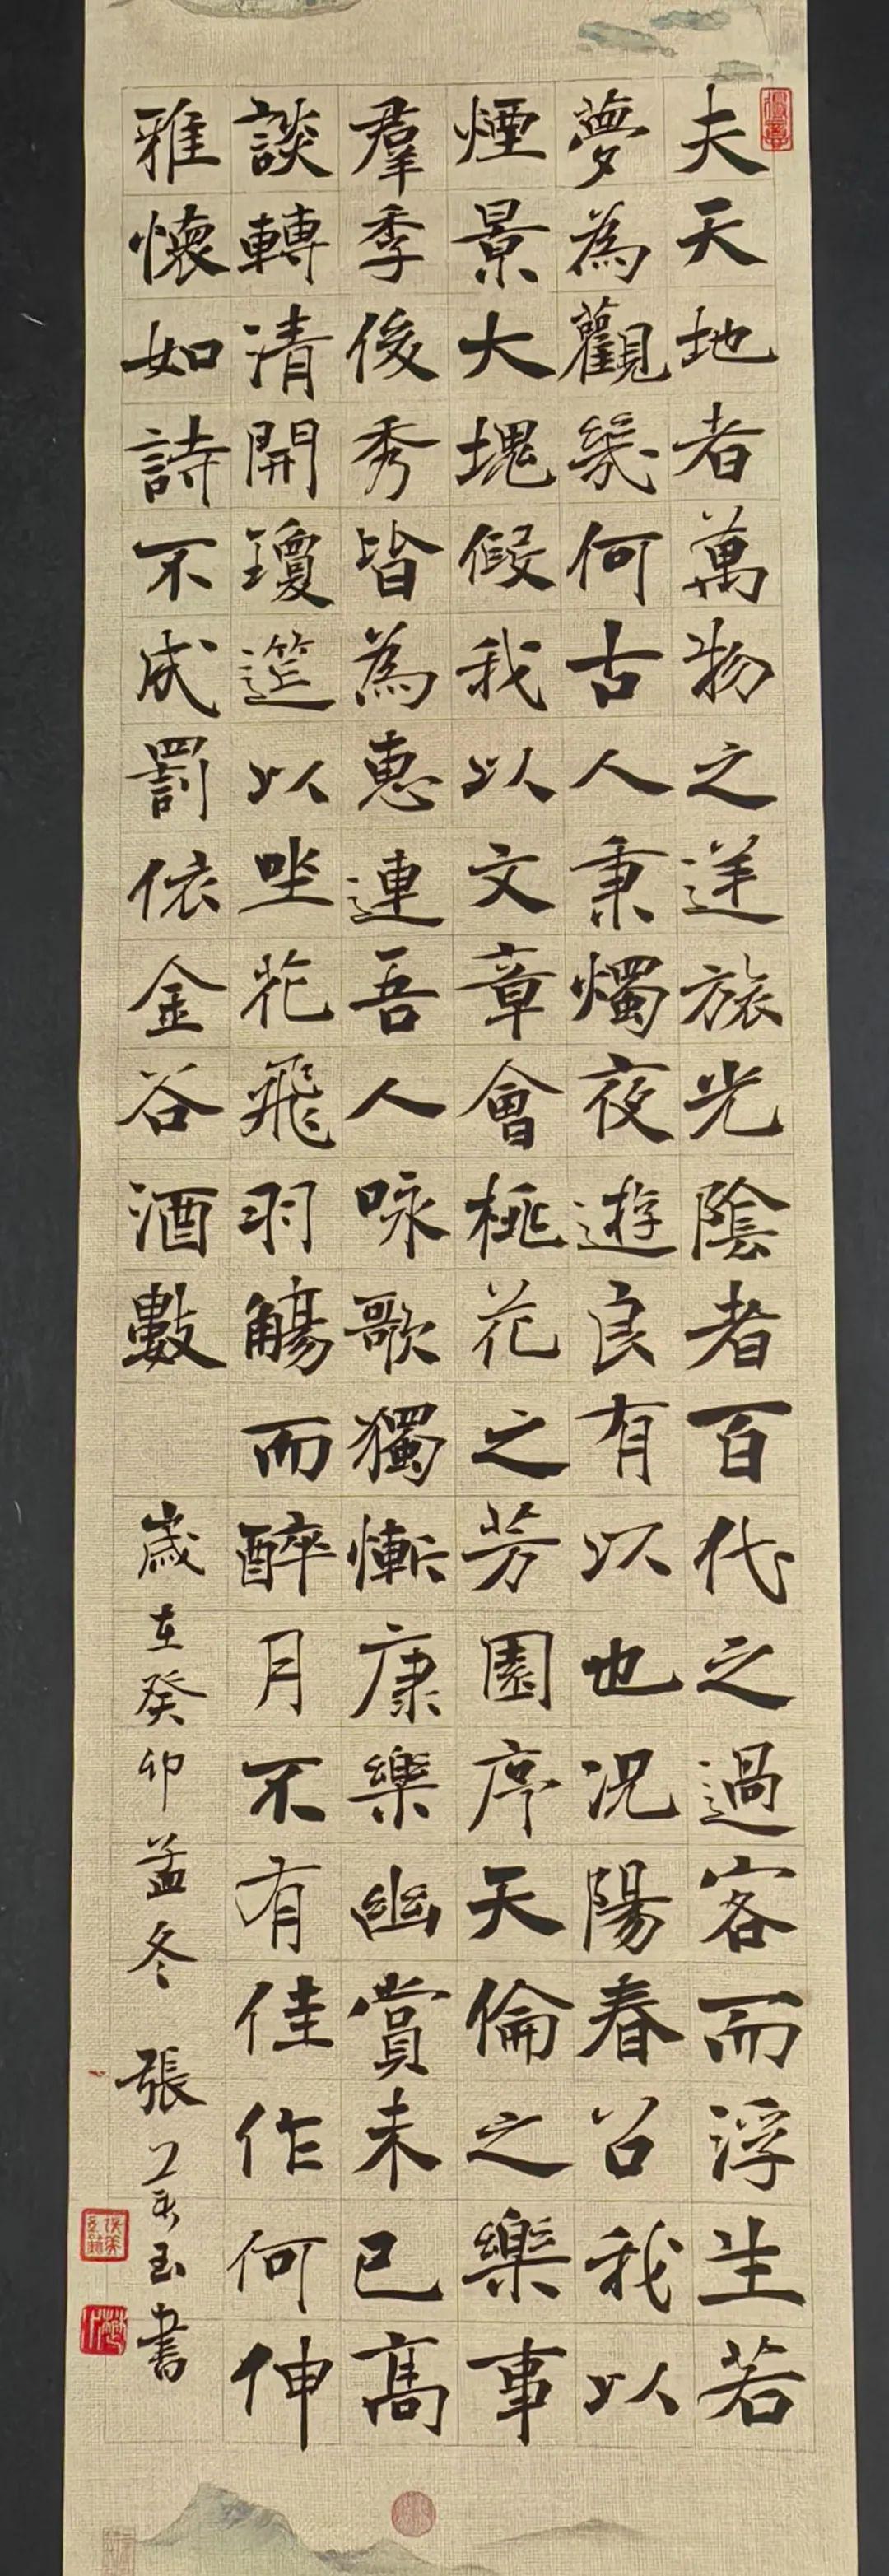 夫天地者萬物之逆旅光陰者百代之過客而浮生若
夢為觀幾何古人秉燭夜遊良有以也況陽春召我以
煙景大塊假我以文章會桃花之芳園序天倫之樂事
羣季俊秀皆為惠連吾人咏歌獨慚康樂幽賞未已高
談轉清開瓊筵以坐花飛羽觴而醉月不有佳作何伸
雅懷如詩不成罰依金谷酒數 歲在癸卯孟冬 張美玉書